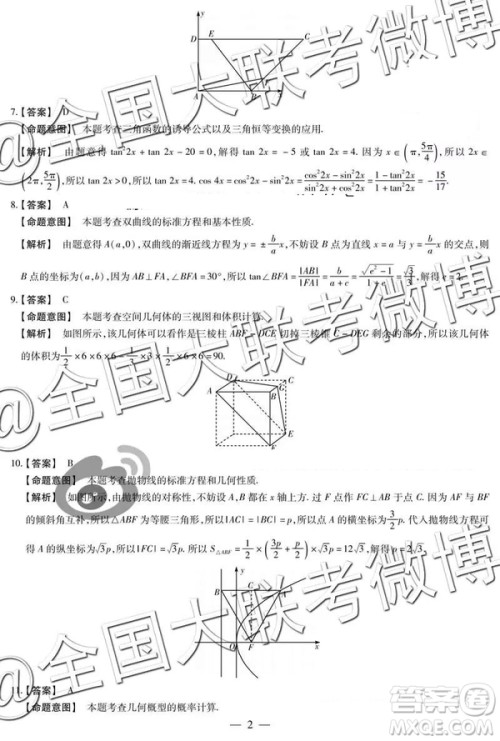 y
D
E
C
A
B
x
7.【答案】 D
【命题意图】 本题考查三角函数的诱导公式以及三角恒等变换的应用.
【解析】 由题意得 tan²2x + tan 2x − 20 = 0, 解得 tan 2x = −5 或 tan 2x = 4. 因为 x∈(π, 5π/4), 所以 2x∈
(2π, 5π/2), 所以 tan 2x > 0, 所以 tan 2x = 4. cos 4x = (cos²2x − sin²2x)/(cos²2x + sin²2x) = (1 − tan²2x)/(1 + tan²2x) = −15/17.
8.【答案】 A
【命题意图】 本题考查双曲线的标准方程和基本性质.
【解析】 由题意得 A(a,0), 双曲线的渐近线方程为 y = ± b/a x, 不妨设 B 点为直线 x = a 与 y = b/a x 的交点, 则
B 点的坐标为(a,b), 因为 AB⊥FA, ∠BFA = 30°, 所以 tan ∠BFA = |AB|/|FA| = b/(a + c) = √(e² − 1)/(e + 1) = √3/3, 解得 e = 2.
9.【答案】 C
【命题意图】 本题考查空间几何体的三视图和体积计算.
【解析】 如图所示, 该几何体可以看作是三棱柱 ABF − DCE 切掉三棱锥 C − DEG 剩余的部分, 所以该几何
体的体积为 1/2 × 6 × 6 × 6 − 1/3 × 3 × 1/2 × 6 × 6 = 90.
D
C
G
A
B
E
F
10.【答案】 B
【命题意图】 本题考查抛物线的标准方程和几何性质.
【解析】 如图所示, 由抛物线的对称性, 不妨设 A 在 x 轴上方. 过 F 作 FC⊥AB 于点 C. 因为 AF 与 BF
的倾斜角互补, 所以△ABF 为等腰三角形, 所以 |AC| = |BC| = p, 所以点 A 的横坐标为 3/2 p. 代入抛物线方程可
得 A 的纵坐标为 √3p, 所以 |FC| = √3p. 所以 S△ABF = 1/2 × (3p/2 + p/2) × √3p = 12√3, 解得 p = 2√3.
y
B
C
A
O
F
x
11.【答案】 A
【命题意图】 本题考查几何概型的概率计算.
— 2 —
@全国大联考微博
@全国大联考微博
@全国大联考微博